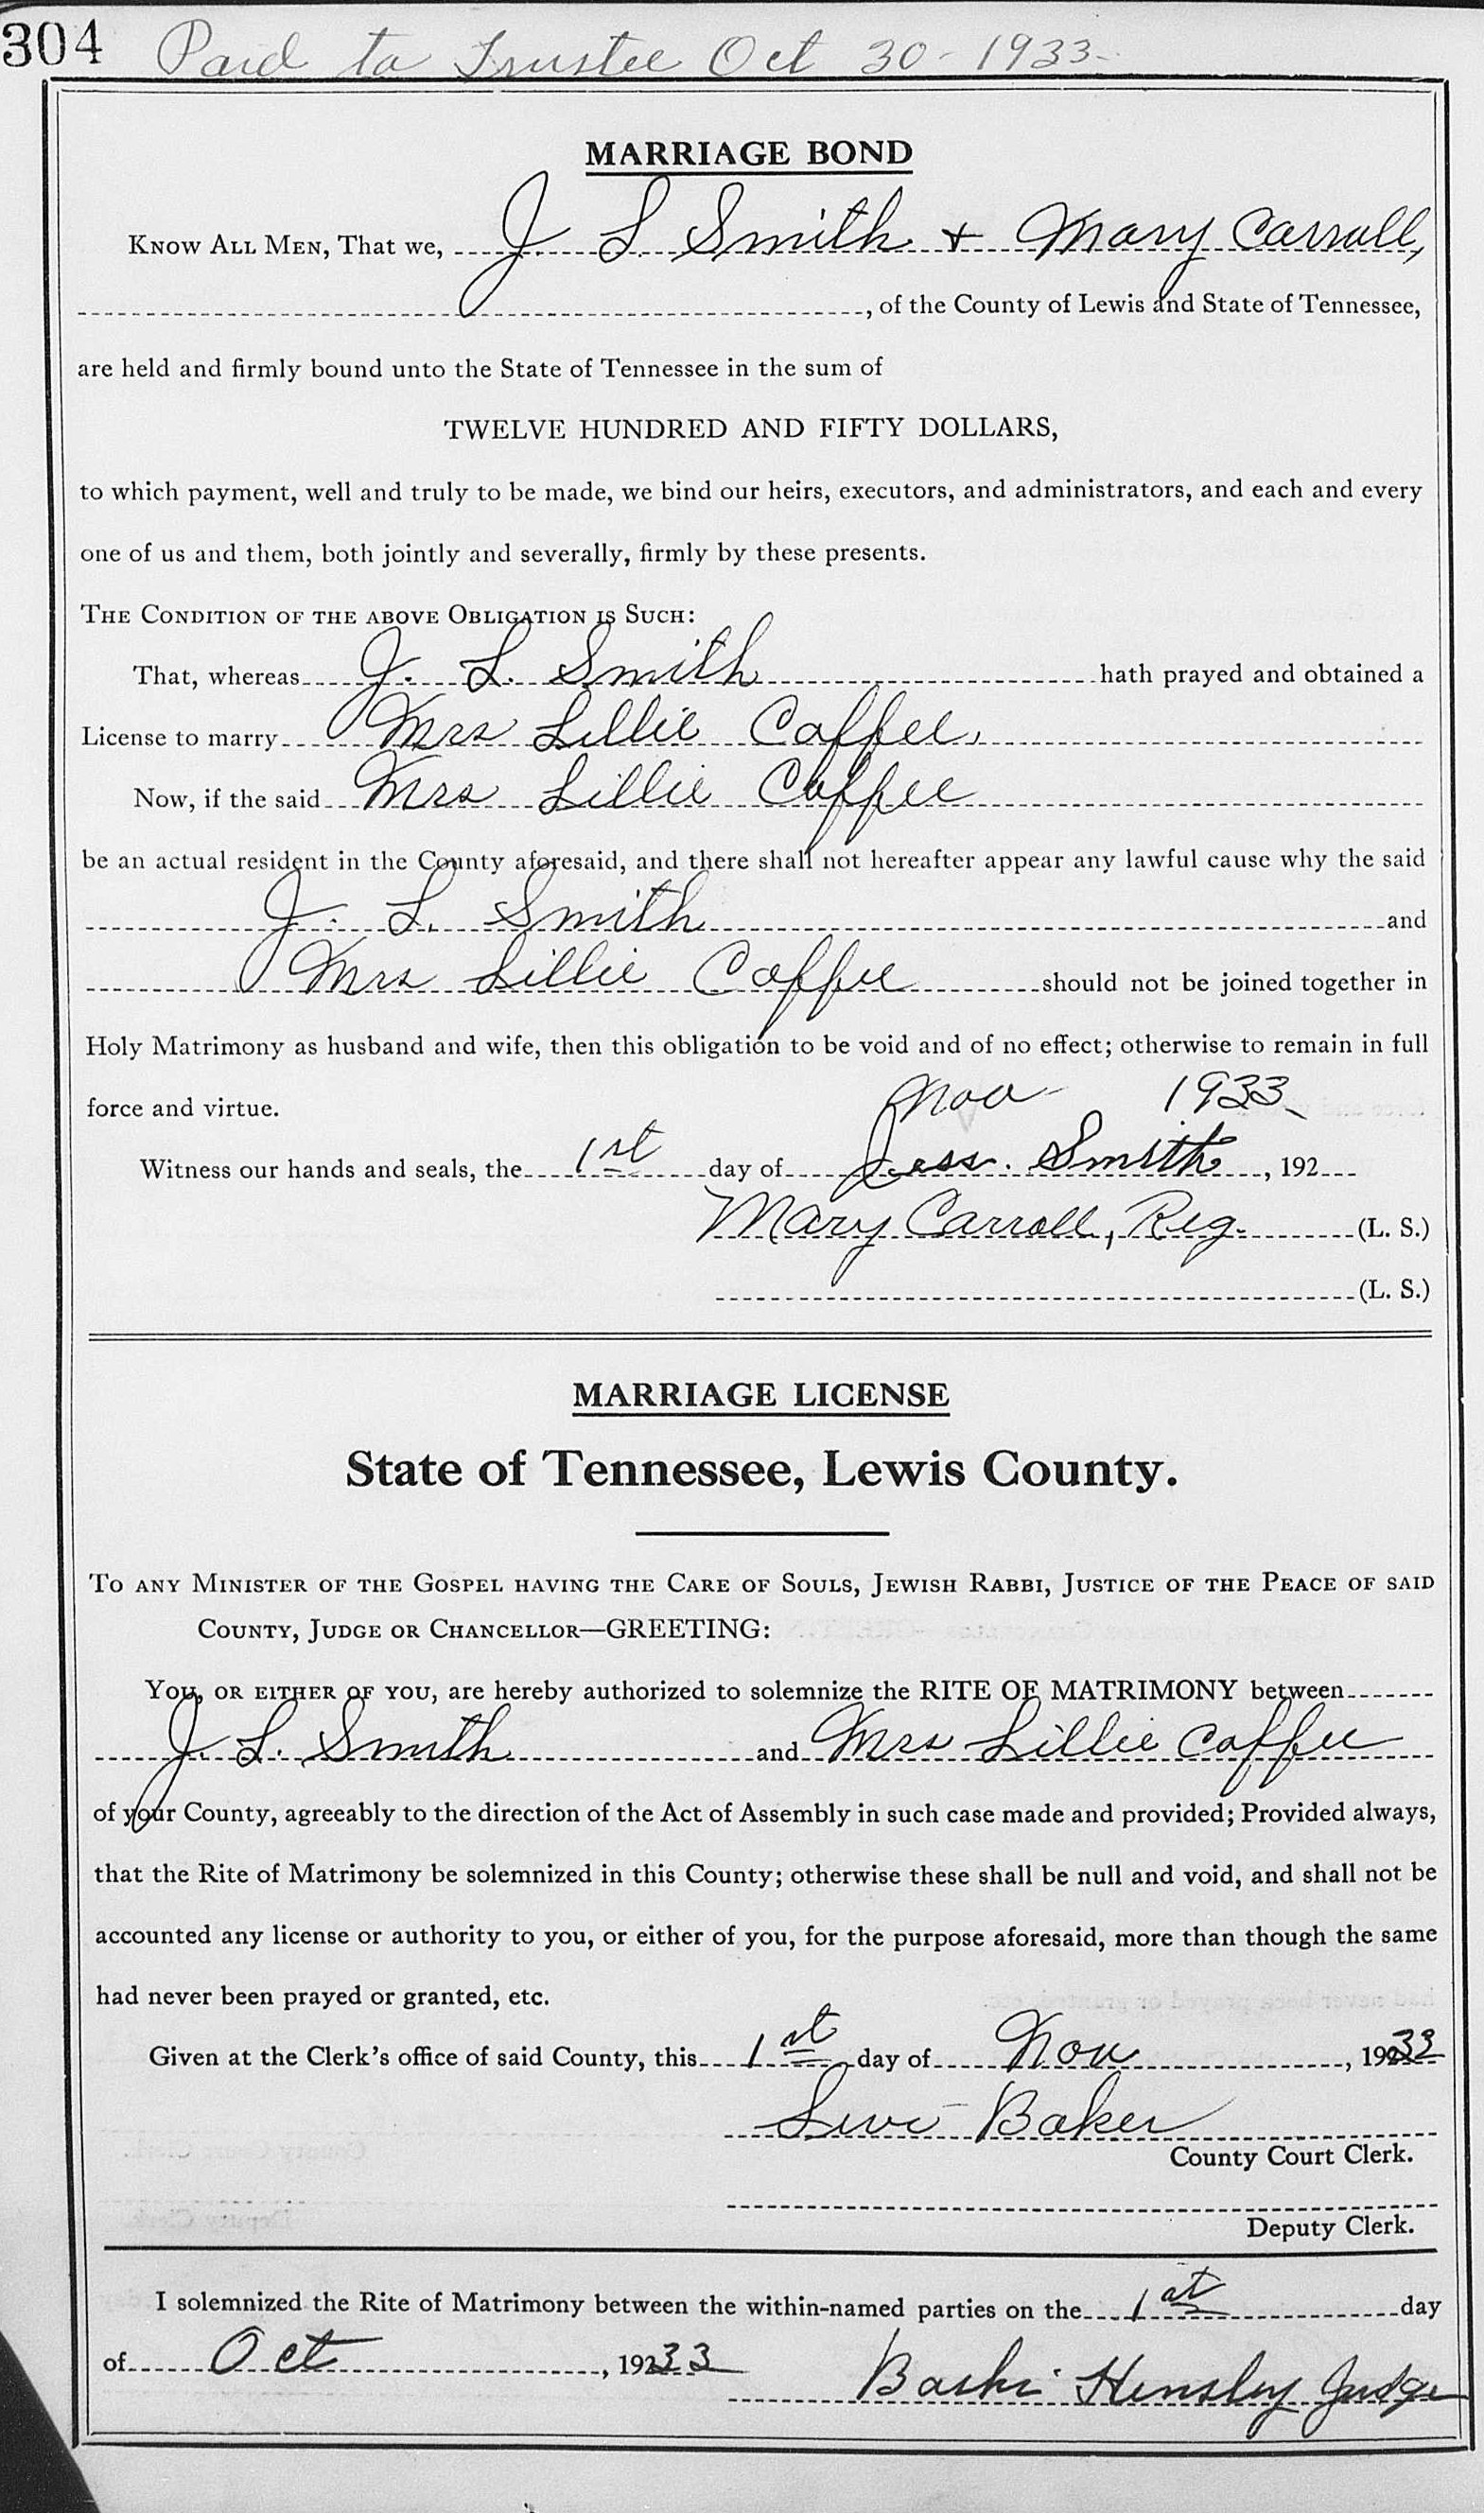 304 Paid to Trustee Oct 30 - 1933 -
MARRIAGE BOND
KNOW ALL MEN, That we, J. L. Smith + Mary Carroll,
, of the County of Lewis and State of Tennessee,
are held and firmly bound unto the State of Tennessee in the sum of
TWELVE HUNDRED AND FIFTY DOLLARS,
to which payment, well and truly to be made, we bind our heirs, executors, and administrators, and each and every
one of us and them, both jointly and severally, firmly by these presents.
THE CONDITION OF THE ABOVE OBLIGATION IS SUCH:
That, whereas J. L. Smith hath prayed and obtained a
License to marry Mrs Lillie Coffee,
Now, if the said Mrs Lillie Coffee
be an actual resident in the County aforesaid, and there shall not hereafter appear any lawful cause why the said
J. L. Smith and
Mrs Lillie Coffee should not be joined together in
Holy Matrimony as husband and wife, then this obligation to be void and of no effect; otherwise to remain in full
force and virtue. Nov 1933
Witness our hands and seals, the 1st day of Jess. Smith, 192
Mary Carroll, Reg. (L. S.)
(L. S.)
MARRIAGE LICENSE
State of Tennessee, Lewis County.
TO ANY MINISTER OF THE GOSPEL HAVING THE CARE OF SOULS, JEWISH RABBI, JUSTICE OF THE PEACE OF SAID
COUNTY, JUDGE OR CHANCELLOR—GREETING:
YOU, OR EITHER OF YOU, are hereby authorized to solemnize the RITE OF MATRIMONY between
J. L. Smith and Mrs Lillie Coffee
of your County, agreeably to the direction of the Act of Assembly in such case made and provided; Provided always,
that the Rite of Matrimony be solemnized in this County; otherwise these shall be null and void, and shall not be
accounted any license or authority to you, or either of you, for the purpose aforesaid, more than though the same
had never been prayed or granted, etc.
Given at the Clerk's office of said County, this 1st day of Nov, 1933
Baker
County Court Clerk.
Deputy Clerk.
I solemnized the Rite of Matrimony between the within-named parties on the 1st day
of Oct, 1933
Hensley Judge